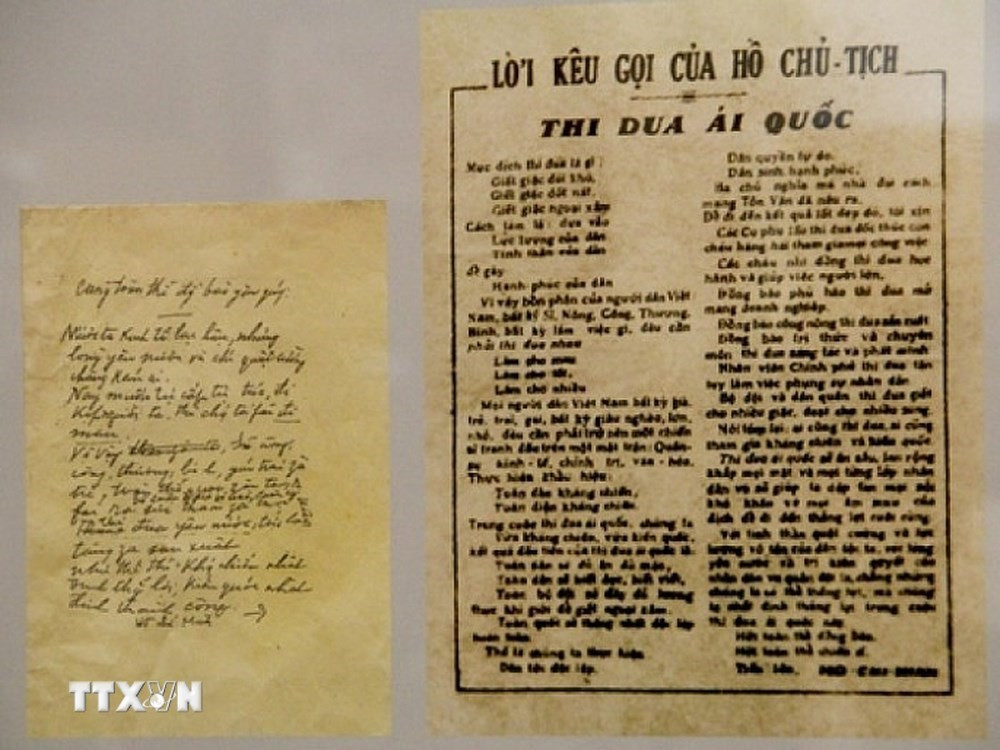 Nước ta kinh tế lạc hậu, nhưng
lòng yêu nước và chí quật cường
chẳng kém ai.
công, thương, binh, gái trai già
tăng gia sản xuất
định thành công.
TTXVN
LỜI KÊU GỌI CỦA HỒ CHỦ-TỊCH
THI DUA ÁI QUỐC
Mục đích thi đua là gì :
Giết giặc đói khổ,
Giết giặc dốt nát,
Giết giặc ngoại xâm
Cách làm là : dựa vào
Lực lượng của dân
Tinh thần của dân
để gây
Hạnh phúc của dân
Vì vậy bổn phận của người dân Việt-
Nam, bất kỳ Sĩ, Nông, Công, Thương,
Binh, bất kỳ làm việc gì, đều cần
phải thi đua nhau
Làm cho mau
Làm cho tốt,
Làm cho nhiều
Mọi người dân Việt Nam bất kỳ già,
trẻ, trai, gái, bất kỳ giàu nghèo, lớn,
nhỏ, đều cần phải trở nên một chiến
sĩ tranh đấu trên mặt trận : Quân-
sự kinh-tế, chính trị, văn-hóa.
Thực hiện khẩu hiệu :
Toàn dân kháng chiến,
Toàn diện kháng chiến.
Trong cuộc thi đua ái quốc, chúng ta
Vừa kháng chiến, vừa kiến quốc,
kết quả đầu tiên của thi đua ái quốc là
Toàn dân sẽ đủ ăn đủ mặc,
Toàn dân sẽ biết đọc, biết viết,
Toàn bộ đội sẽ đầy đủ lương
thực khí giới để giết ngoại xâm.
Toàn quốc sẽ thống nhất độc lập
hoàn toàn.
Thế là chúng ta thực hiện
Dân tộc độc lập.
Dân quyền tự do.
Dân sinh hạnh phúc,
Ba chủ nghĩa mà nhà đại cách
mạng Tôn Văn đã nêu ra.
Để đi đến kết quả tốt đẹp đó, tôi xin
Các Cụ phụ lão thi đua đốc thúc con
cháu hăng hái tham gia mọi công việc
Các cháu nhi đồng thi đua học
hành và giúp việc người lớn.
Đồng bào phú hào thi đua mở
mang doanh nghiệp.
Đồng bào công nông thi đua sản xuất
Đồng bào trí thức và chuyên
môn thi đua sáng tác và phát minh
Nhân viên Chính phủ thi đua tận
tụy làm việc phụng sự nhân dân
Bộ đội và dân quân thi đua giết
cho nhiều giặc, đoạt cho nhiều súng.
Nói tóm lại : ai cũng thi đua, ai cũng
tham gia kháng chiến và kiến quốc.
Thi đua ái quốc sẽ ăn sâu, lan rộng
khắp mọi mặt và mọi tầng lớp nhân
dân và sẽ giúp ta dẹp tan mọi nỗi
khó khăn và mọi âm mưu của
địch để đi đến thắng lợi cuối cùng.
Với tinh thần quật cường và lực
lượng vô tận của dân tộc ta, với lòng
yêu nước và trí kiên quyết của
nhân dân và quân đội ta, chẳng những
chúng ta có thể thắng lợi, mà chúng
ta nhất định thắng lợi trong cuộc
thi đua ái quốc này
Hỡi toàn thể đồng bào.
Hỡi toàn thể chiến sĩ.
Tiến lên. HỒ CHÍ MINH